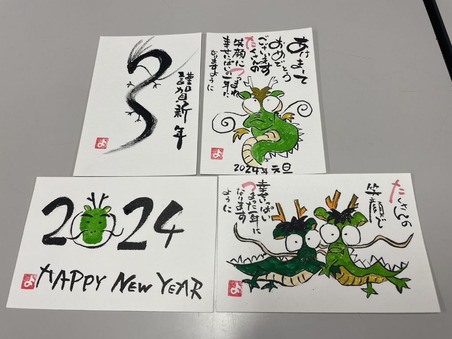 謹賀新年
よ
あけまして
おめでとう
ございます
たくさんの
笑顔につつまれ
幸せいっぱいの一年に
なりますように
2024年 元旦
よ
2024
HAPPY NEW YEAR
よ
たくさんの
笑顔で
幸せいっぱい
つまった一年に
なります
ように
よ